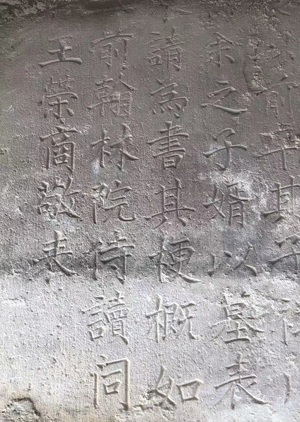 卒其子
余之子婿以墓表
請為書其梗概如
前翰林院侍讀同
王榮商敬表